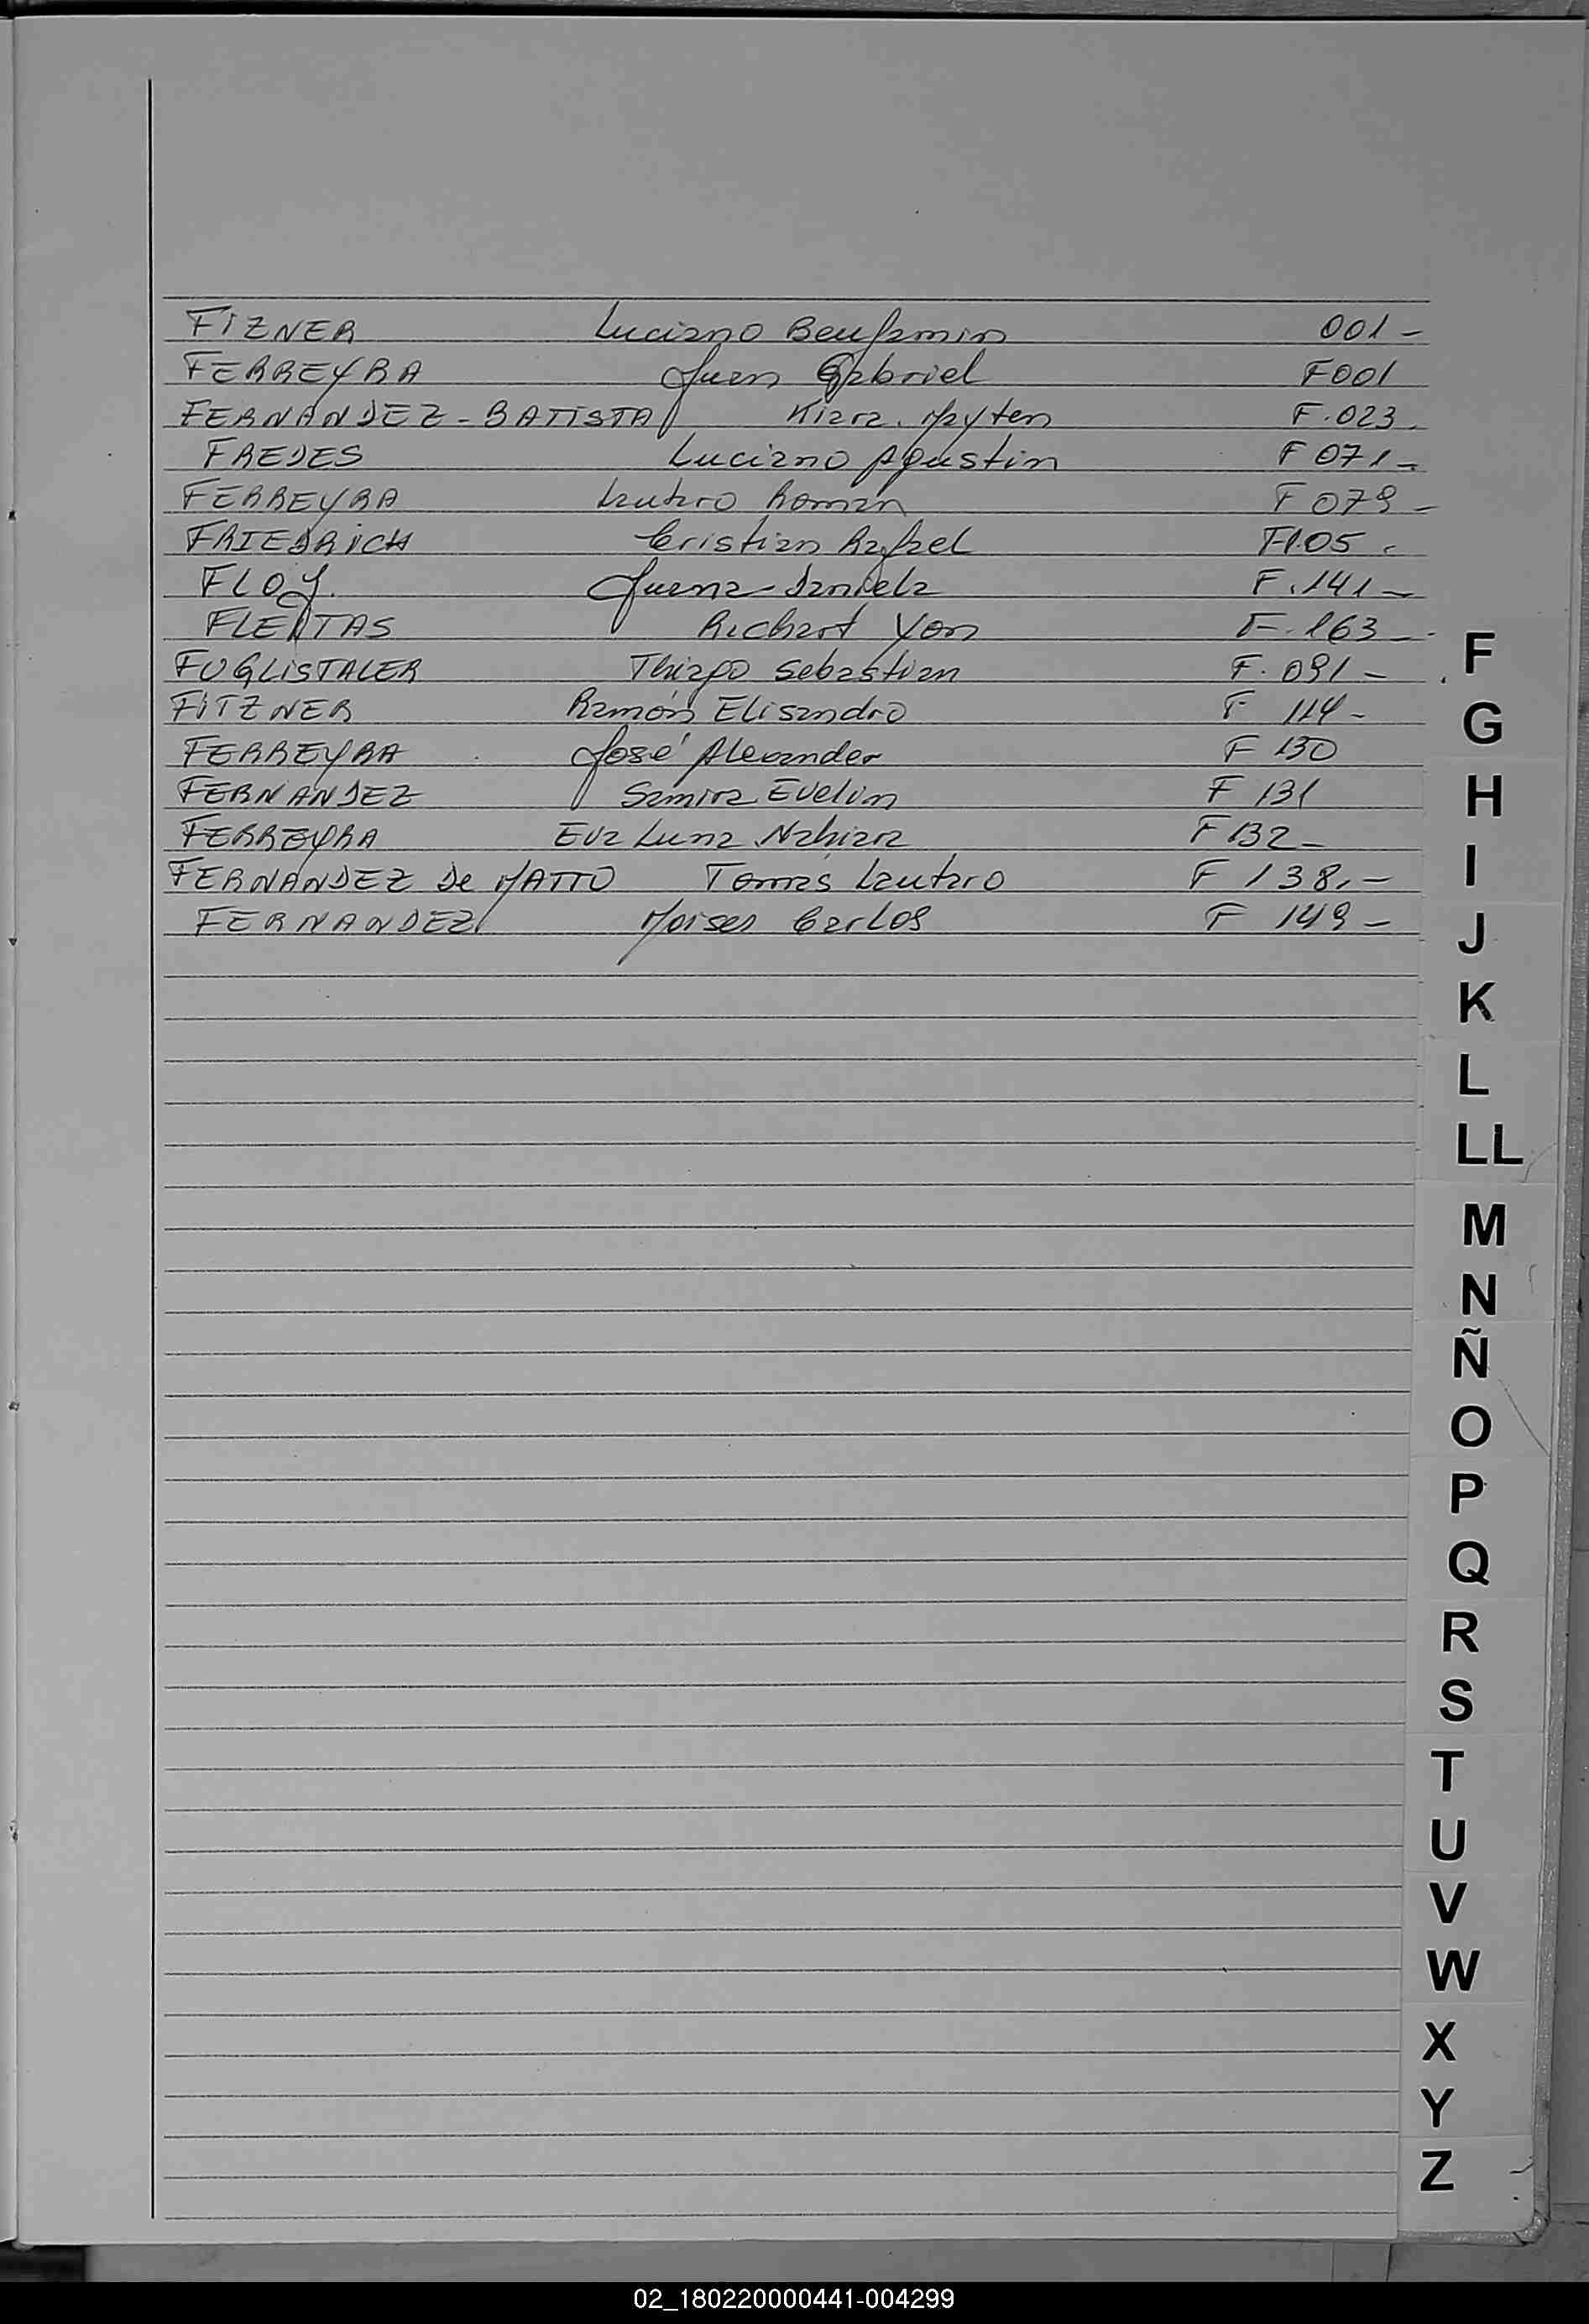 FIZNER Luciano Benjamin 001-
FERREYRA Juan Gabriel F001
FERNANDEZ-BATISTA Kiara Mayten F.023.
FREDES Luciano Agustin F 071-
FERREYRA Lautaro Román F 079-
FRIEDRICH Cristian Rafael F105.
FLOY. Juana Daniela F.141-
FLEITAS Richart Yon F.163-
FUGLISTALER Thiago Sebastian F.091-
FITZNER Ramón Elisandro F 114-
FERREYRA José Alexander F 130
FERNANDEZ Samira Evelin F 131
FERREYRA Eva Luna Nahiara F132-
FERNANDEZ De MATTO Tomás Lautaro F 138.-
FERNANDEZ Moises Carlos F 149-
F
G
H
I
J
K
L
LL
M
N
Ñ
O
P
Q
R
S
T
U
V
W
X
Y
Z
02_180220000441-004299